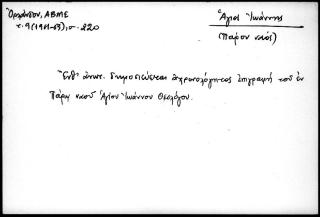 Ὀρλάνδον, ΑΒΜΕ
τ. 9 (1961-63), σ. 220
Ἅγιος Ἰωάννης
(Πάρου ναός)
Ἔνθ' ἀνωτ. δημοσιεύεται ἀχρονολόγητος ἐπιγραφή τοῦ ἐν
Πάρῳ ναοῦ Ἁγίου Ἰωάννου Θεολόγου.